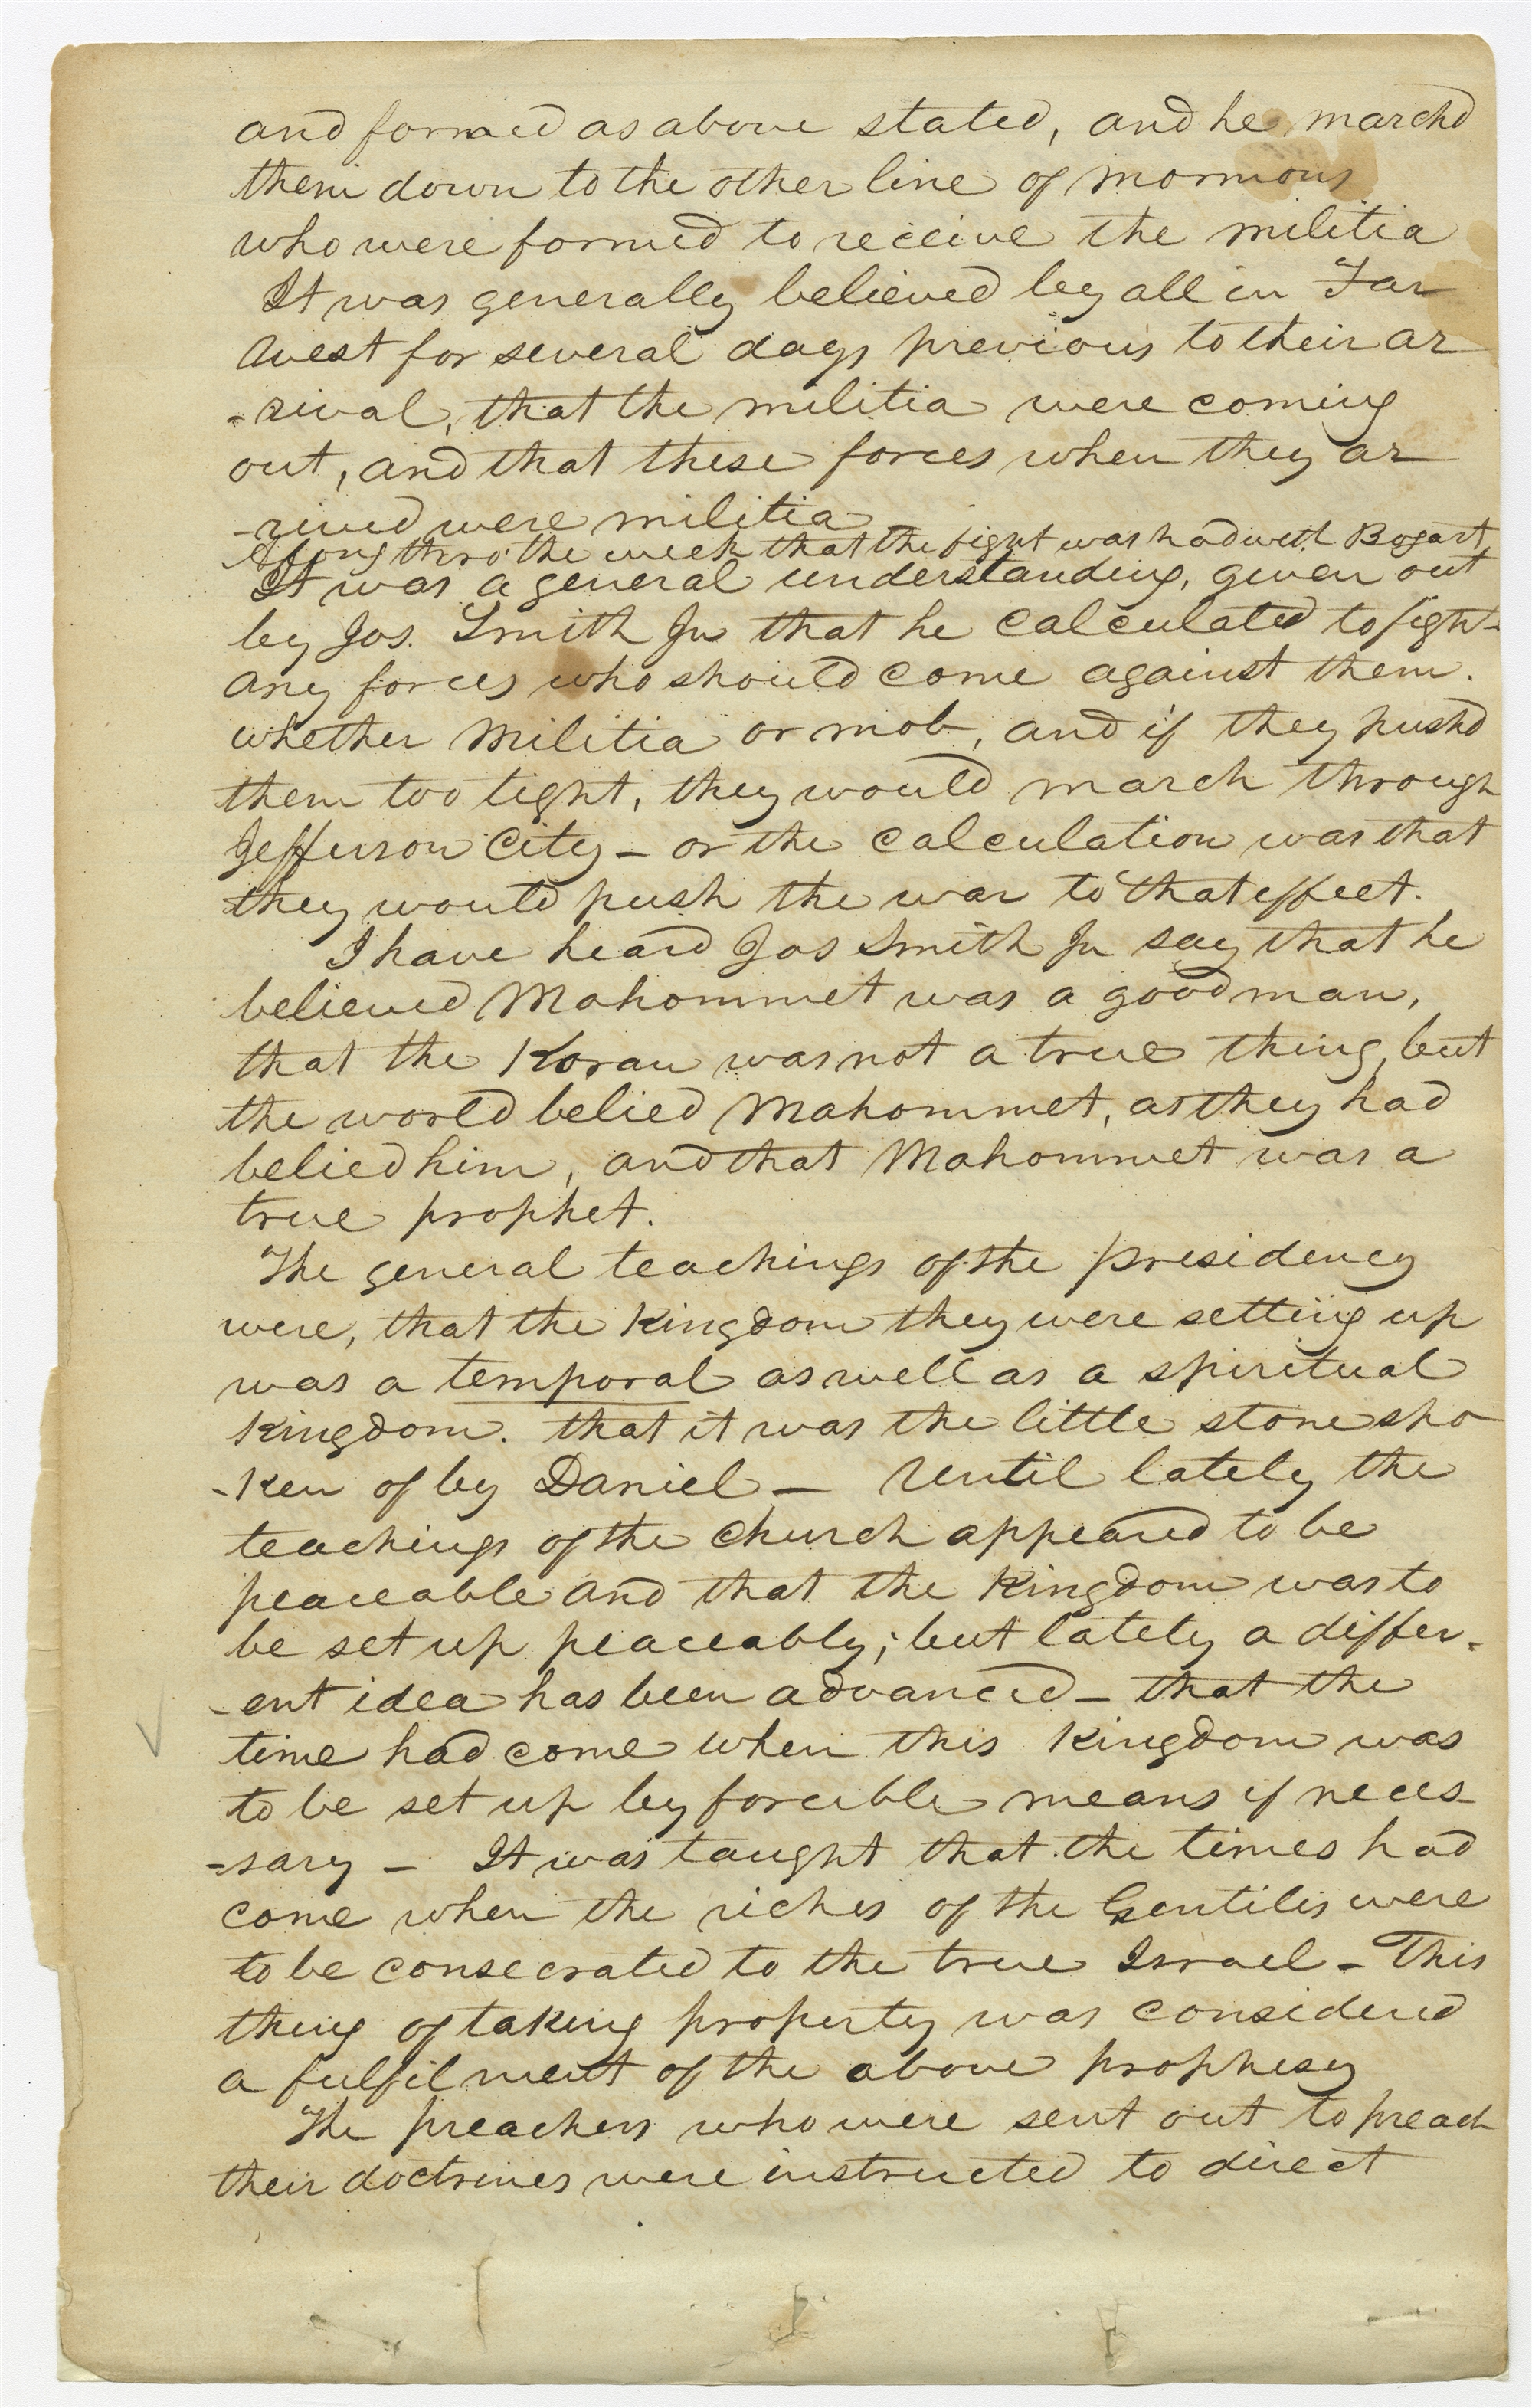 and formed as above stated, and he marchd
them down to the other line of mormons
who were formed to receive the militia
It was generally believed by all in Far
West for several days previous to their ar
-rival, that the militia were coming
out, and that these forces when they ar
-rived were militia
Along thro' the week that the fight was had with Bogart,
It was a general understanding, given out
by Jos. Smith Jr that he calculated to fight
any forces who should come against them.
whether militia or mob, and if they pushd
them too tight, they would march through
Jefferson City - or the calculation was that
they would push the war to that effect.
I have heard Jos Smith Jr say that he
believed Mahommet was a good man,
that the Koran was not a true thing, but
the world belied Mahommet, as they had
belied him, and that Mahommet was a
true prophet.
The general teachings of the presidency
were, that the Kingdom they were setting up
was a temporal as well as a spiritual
Kingdom. that it was the little stone spo
-ken of by Daniel - Until lately the
teachings of the church appeared to be
peaceable and that the Kingdom was to
be set up peaceably; but lately a differ-
-ent idea has been advanced - that the
time had come when this Kingdom was
to be set up by forcible means if neces-
-sary - It was taught that the times had
come when the riches of the Gentiles were
to be consecrated to the true Israel - This
thing of taking property was considered
a fulfilment of the above prophesy
The preachers who were sent out to preach
their doctrines were instructed to direct